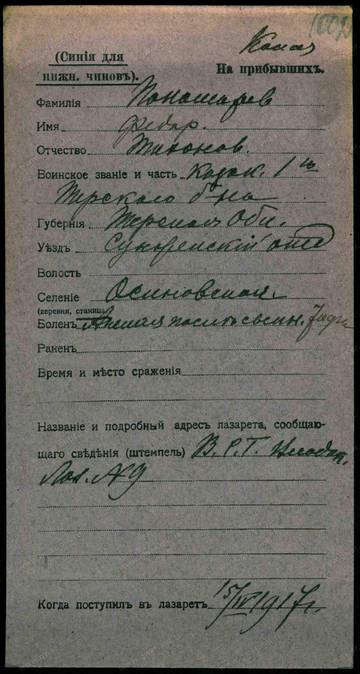 Копия
(Синія для
нижн. чиновъ).
На прибывшихъ.
Фамилія Пономарев
Имя Федор.
Отчество Тихонов.
Воинское званіе и часть Козак. 1го
Терского б-на
Губернія Терская Обл.
Уѣздъ Сунженскій отд
Волость
Селеніе Осиновская
(деревня, станица)
Боленъ
Раненъ
Время и мѣсто сраженія
Названіе и подробный адресъ лазарета, сообщаю-
щаго свѣдѣнія (штемпель) В. Р. Г.
Лаз. № 9
Когда поступилъ въ лазаретъ 15/IV 1917 г.